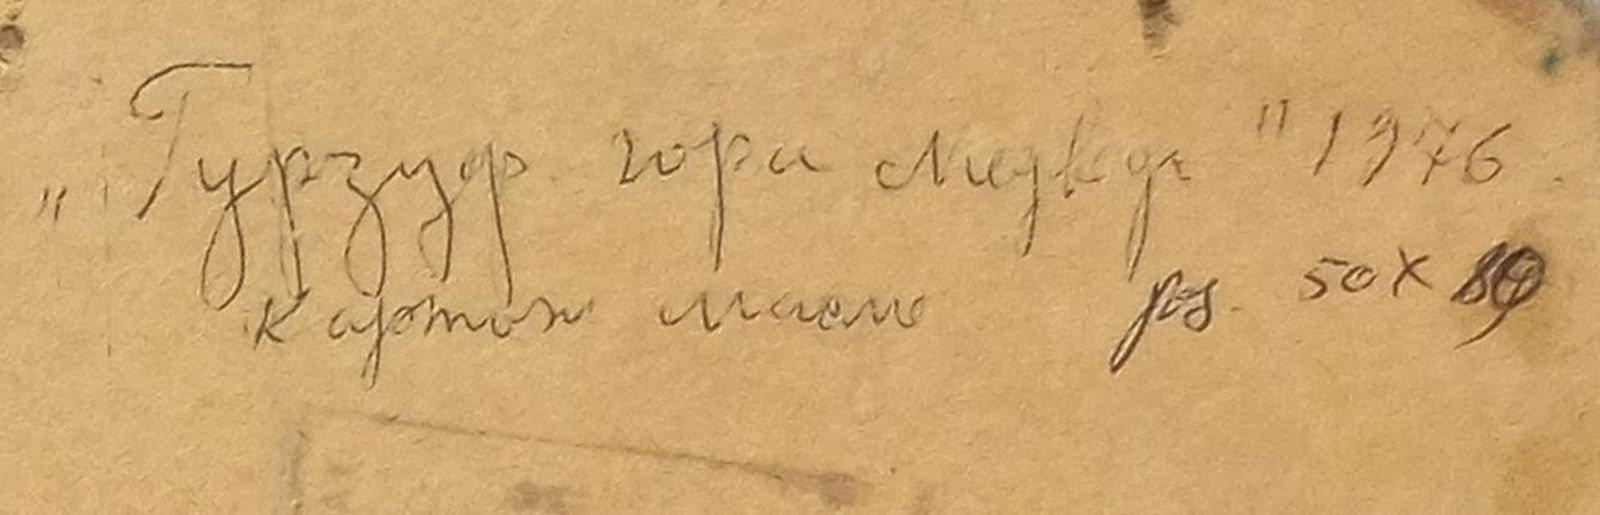 „Гурзуф гора Медведь" 1976
картон масло рз. 50 X